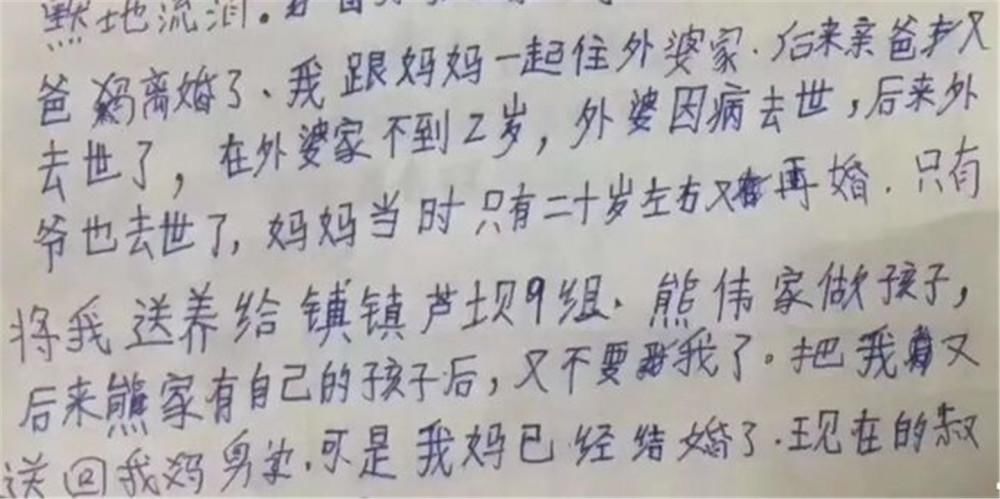 默地流泪。
爸妈离婚了、我跟妈妈一起住外婆家.后来亲爸又
去世了，在外婆家不到2岁，外婆因病去世，后来外
爷也去世了，妈妈当时只有二十岁左右又再婚.只有
将我送养给镇芦坝9组.熊伟家做孩子，
后来熊家有自己的孩子后，又不要我了。把我又
送回我妈身边.可是我妈已经结婚了.现在的叔